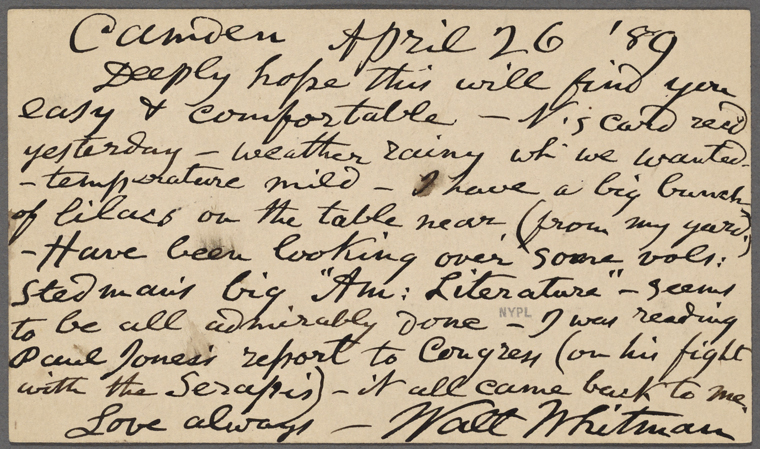 Camden April 26 '89
Deeply hope this will find you
easy & comfortable — N's card rec'd
yesterday — weather rainy wh' we wanted
— temperature mild — I have a big bunch
of lilacs on the table near (from my yard)
— Have been looking over some vols:
Stedman's big "Am: Literature" — seems
to be all admirably done — I was reading
Paul Jones's report to Congress (on his fight
with the Serapis) — it all came back to me
Love always — Walt Whitman
NYPL